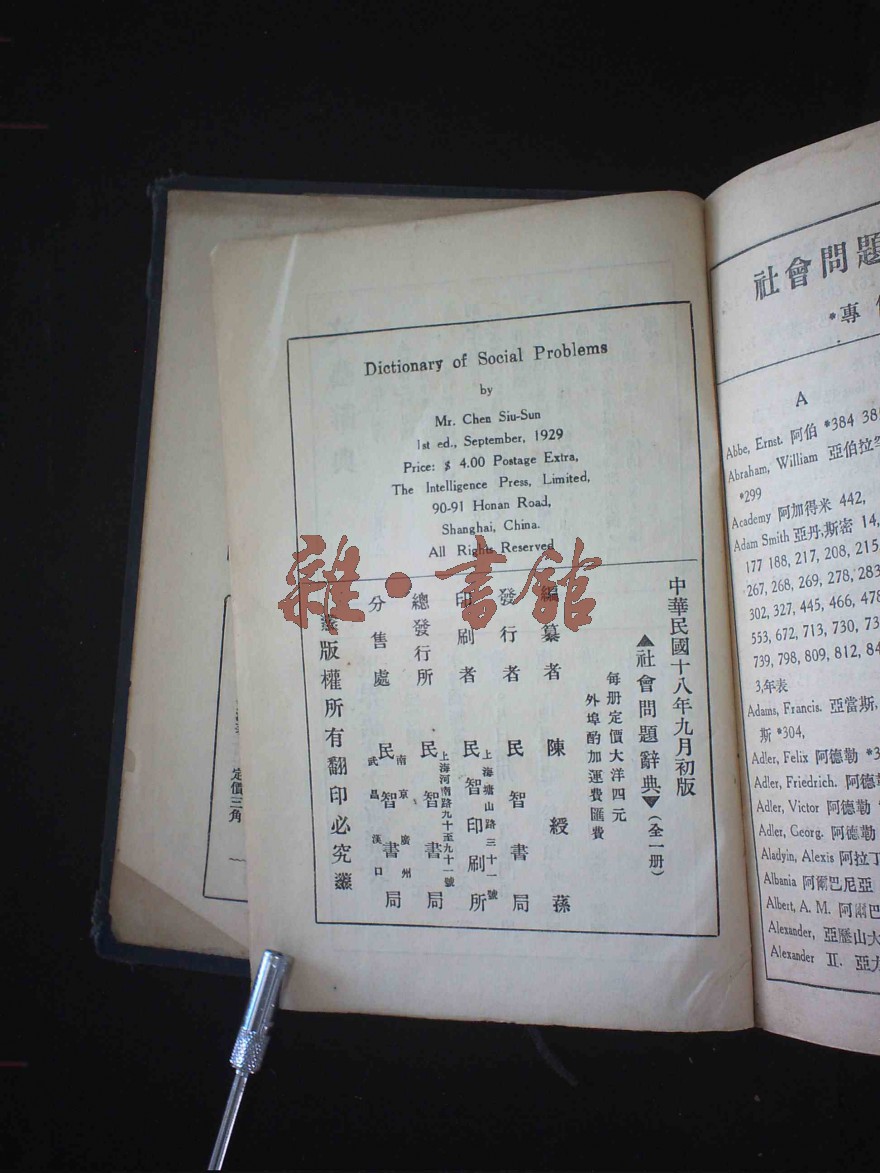 Dictionary of Social Problems
by
Mr. Chen Siu-Sun
1st ed., September, 1929
Price: $ 4.00 Postage Extra,
The Intelligence Press, Limited,
90-91 Honan Road,
Shanghai, China.
All Rights Reserved
雜·書館
中華民國十八年九月初版
▲社會問題辭典▼（全一册）
每册定價大洋四元
外埠酌加運費匯費
編纂者 陳綬蓀
發行者 民智書局
印刷者 民智印刷所
上海塘山路三十一號
總發行所 民智書局
上海河南路九十至九十一號
分售處 民智書局
南京 廣州
武昌 漢口
版權所有翻印必究
定價三角
社會問題
*專
A
Abbe, Ernst. 阿伯 *384 385
Abraham, William 亞伯拉罕
*299
Academy 阿加得米 442,
Adam Smith 亞丹,斯密 14,
177 188, 217, 208, 215
267, 268, 269, 278, 283
302, 327, 445, 466, 478
553, 672, 713, 730, 73
739, 798, 809, 812, 84
3,年表
Adams, Francis. 亞當斯,
斯 *304,
Adler, Felix 阿德勒 *3
Adler, Friedrich. 阿德勒
Adler, Victor 阿德勒
Adler, Georg. 阿德勒
Aladyin, Alexis 阿拉丁
Albania 阿爾巴尼亞
Albert, A. M. 阿爾巴
Alexander, 亞歷山大
Alexander II. 亞力